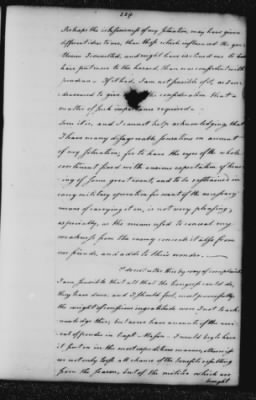 224
Perhaps the irksomeness of my situation, may have given
different ideas to me, than those which influenced the gen-
tlemen I consulted, and might have inclined me to
have put more to the hazard than was consistent with
prudence. If it had, I am not sensible of it, as I
endeavored to give it the consideration that a
matter of such importance required.
True it is, and I cannot help acknowledging that
I have many disagreeable sensations on account
of my situation; for to have the eyes of the whole
continent fixed with anxious expectation of hear-
ing of some great event, and to be restrained in
every military operation for want of the necessary
means of carrying it on, is not very pleasing,
especially, as the means used to conceal my
weakness from the enemy conceals it also from
our friends, and adds to their wonder.
I do not utter this by way of complaint.
I am sensible that all that the Congress could do,
they have done; and I should feel, most powerfully
the weight of conscious ingratitude were I not to ack-
nowledge this; but as we have accounts of the arri-
val of powder in Capt. Mason, I would beg to have
it sent on in the most expeditious manner, otherwise
we not only lose all chance of the benefits resulting
from the season, but of the militia which are
brought